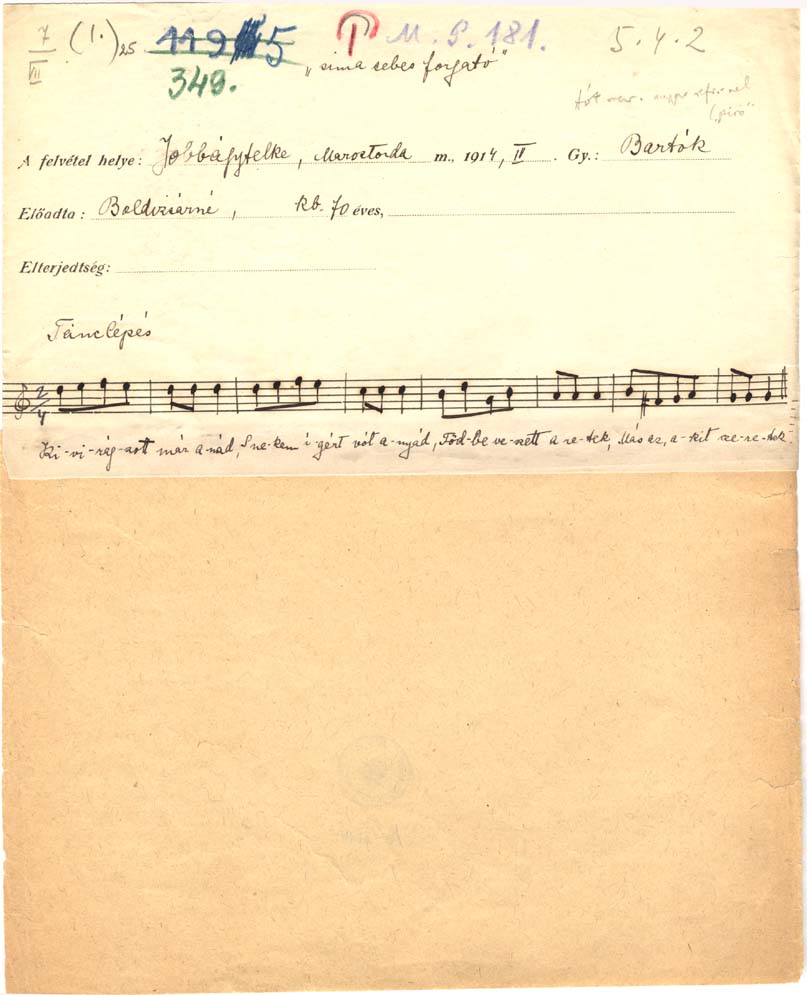 7
VII
(1.) 25
349.
M. P. 181.
5. 4. 2
„sima sebes forgató”
A felvétel helye: Jobbágytelke, Marostorda m., 1914, IV. Gy.: Bartók
Előadta: Baldizsárné, kb. 70 éves,
Elterjedtség:
Tánclépés
2
4
Ki-vi-rág-zott már a-nád, S ne-kem i-gért vót a-nyád, Föd-be ve-szett a re-tek, Más az, a-kit sze-re-tek.